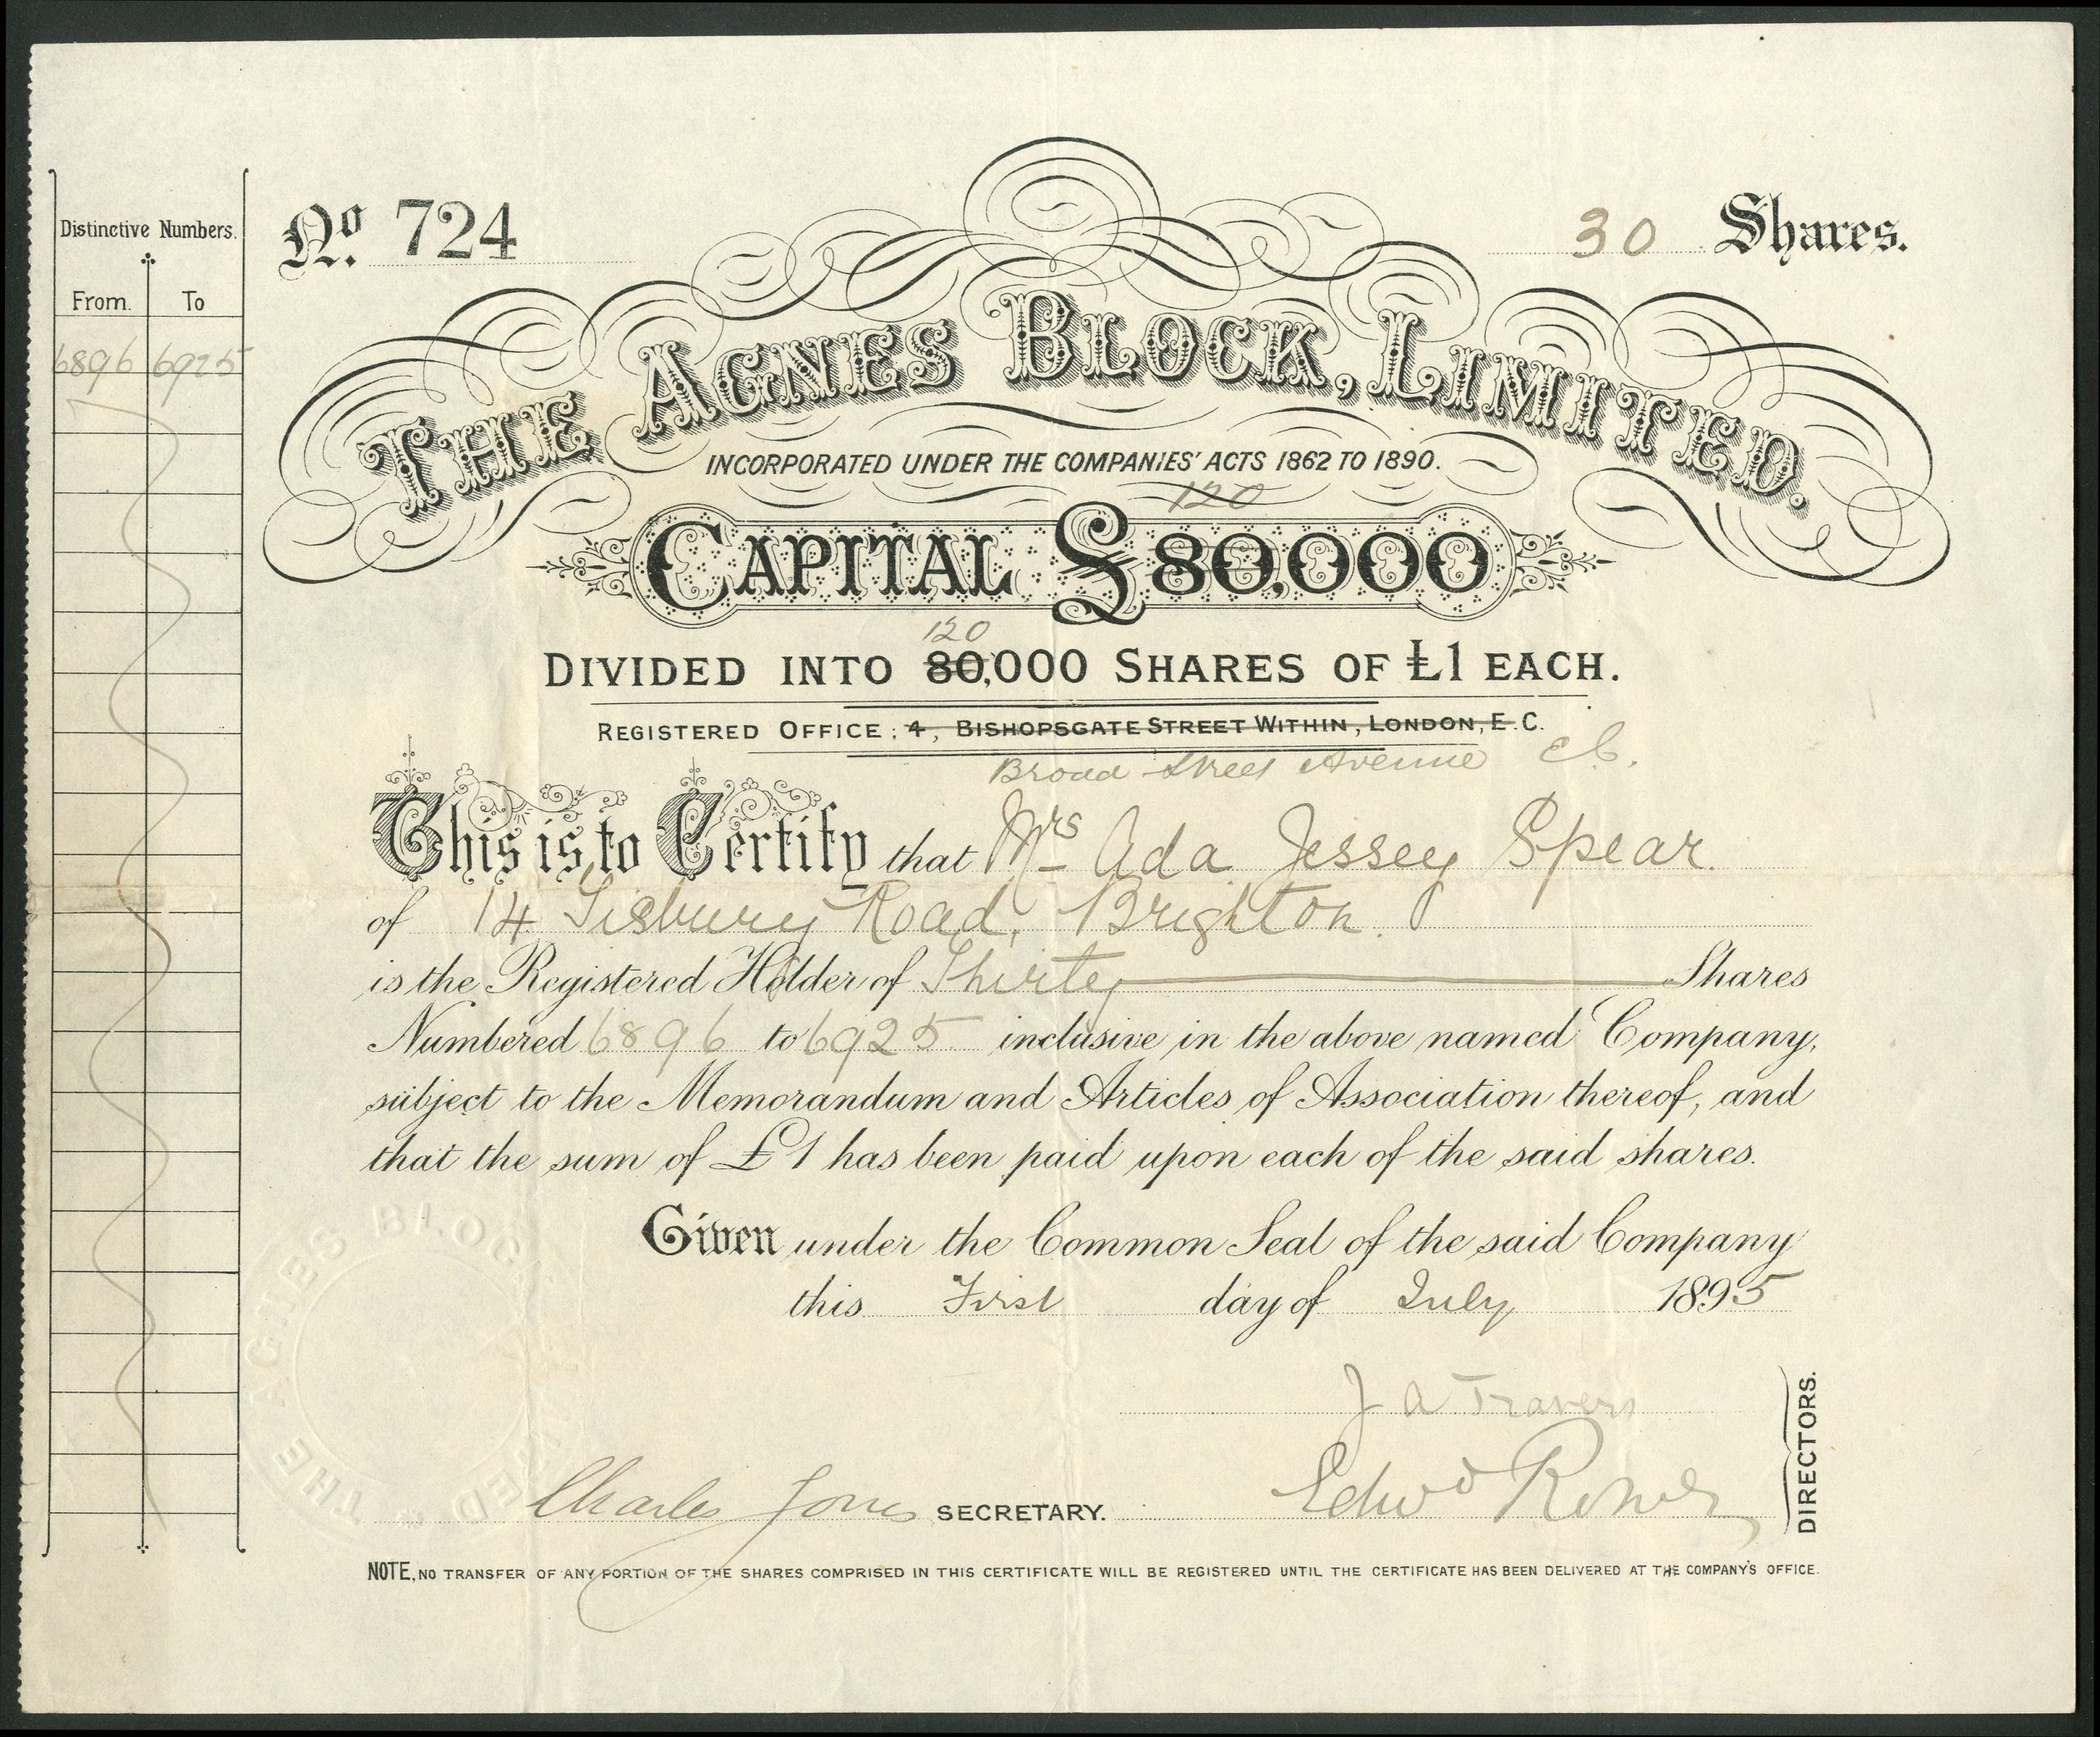 Distinctive Numbers.
From. To
6896 6925
No. 724
30 Shares.
THE AGNES BLOCK, LIMITED.
INCORPORATED UNDER THE COMPANIES' ACTS 1862 TO 1890.
120
CAPITAL £80,000
120
DIVIDED INTO 80,000 SHARES OF £1 EACH.
REGISTERED OFFICE: 4, BISHOPSGATE STREET WITHIN, LONDON, E.C.
Broad Street Avenue E.C.
This is to Certify that Mrs Ada Jessey Spear.
of 14 Tisbury Road, Brighton.
is the Registered Holder of Thirty Shares
Numbered 6896 to 6925 inclusive in the above named Company,
subject to the Memorandum and Articles of Association thereof, and
that the sum of £1 has been paid upon each of the said shares.
Given under the Common Seal of the said Company
this First day of July 1895
J A Travers
Charles Jones SECRETARY.
Edwd
DIRECTORS.
NOTE, NO TRANSFER OF ANY PORTION OF THE SHARES COMPRISED IN THIS CERTIFICATE WILL BE REGISTERED UNTIL THE CERTIFICATE HAS BEEN DELIVERED AT THE COMPANY'S OFFICE.
THE AGNES BLOCK LIMITED